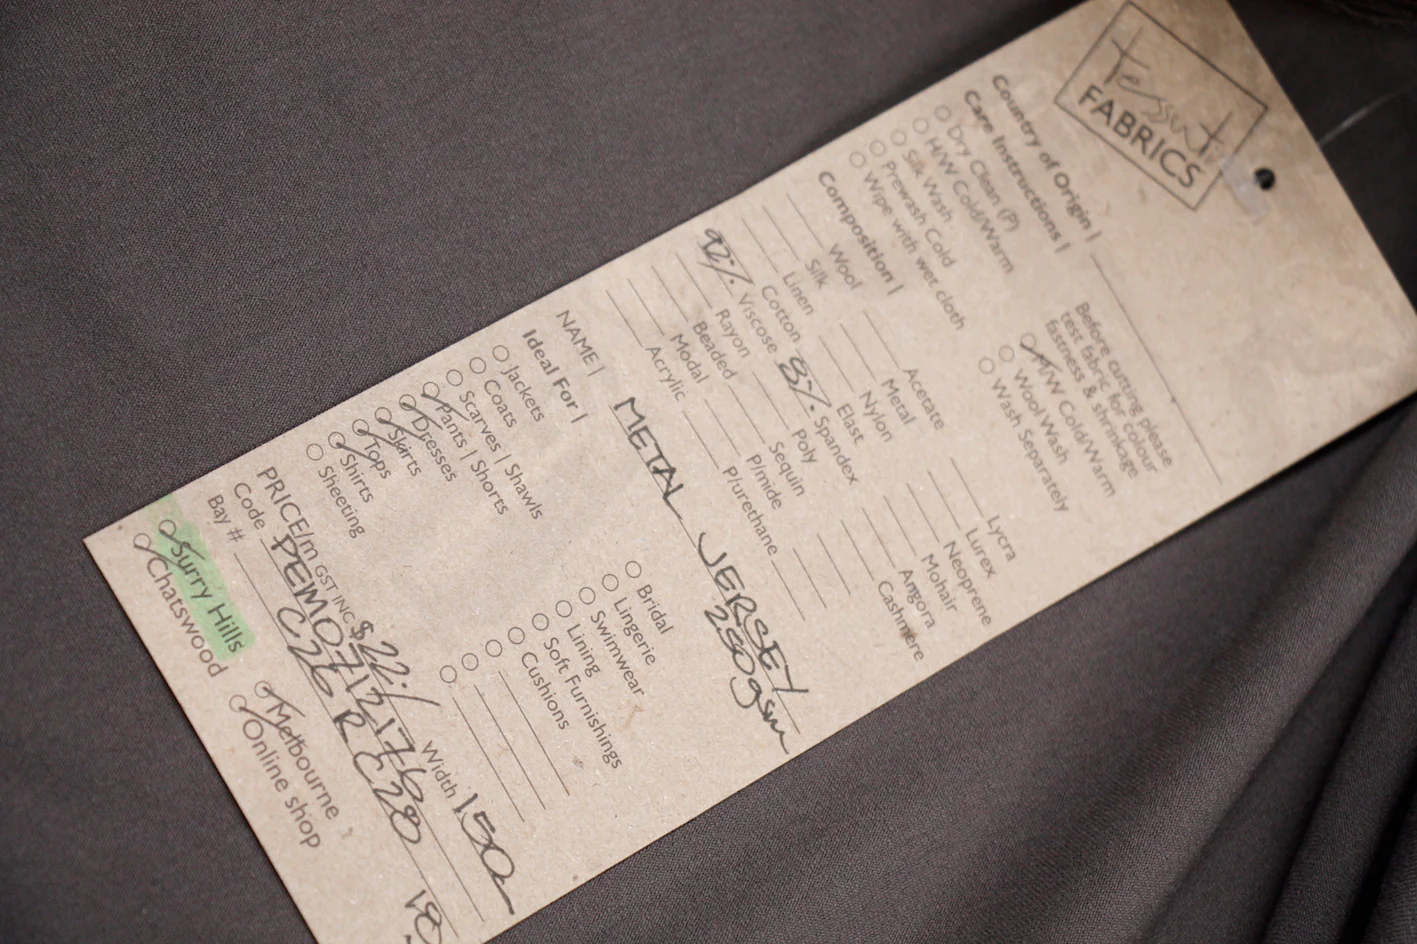 Tessuti
FABRICS
Country of Origin |
Care Instructions |
Dry Clean (P)
H/W Cold/Warm
Silk Wash
Prewash Cold
Wipe with wet cloth
Before cutting please
test fabric for colour
fastness & shrinkage
H/W Cold/Warm
Wool Wash
Wash Separately
Composition |
Wool
Silk
Linen
Cotton
92% Viscose
Rayon
Beaded
Modal
Acrylic
Acetate
Metal
Nylon
Elast
8% Spandex
Poly
Sequin
P/mide
P/urethane
Lycra
Lurex
Neoprene
Mohair
Angora
Cashmere
NAME | METAL JERSEY
280gsm
Ideal For |
Jackets
Coats
Scarves | Shawls
Pants | Shorts
Dresses
Skirts
Tops
Shirts
Sheeting
Bridal
Lingerie
Swimwear
Lining
Soft Furnishings
Cushions
PRICE/m GST INC $22./ Width 150
Code PEIM071217620
Bay # C26 R C20
Surry Hills
Chatswood
Melbourne
Online shop